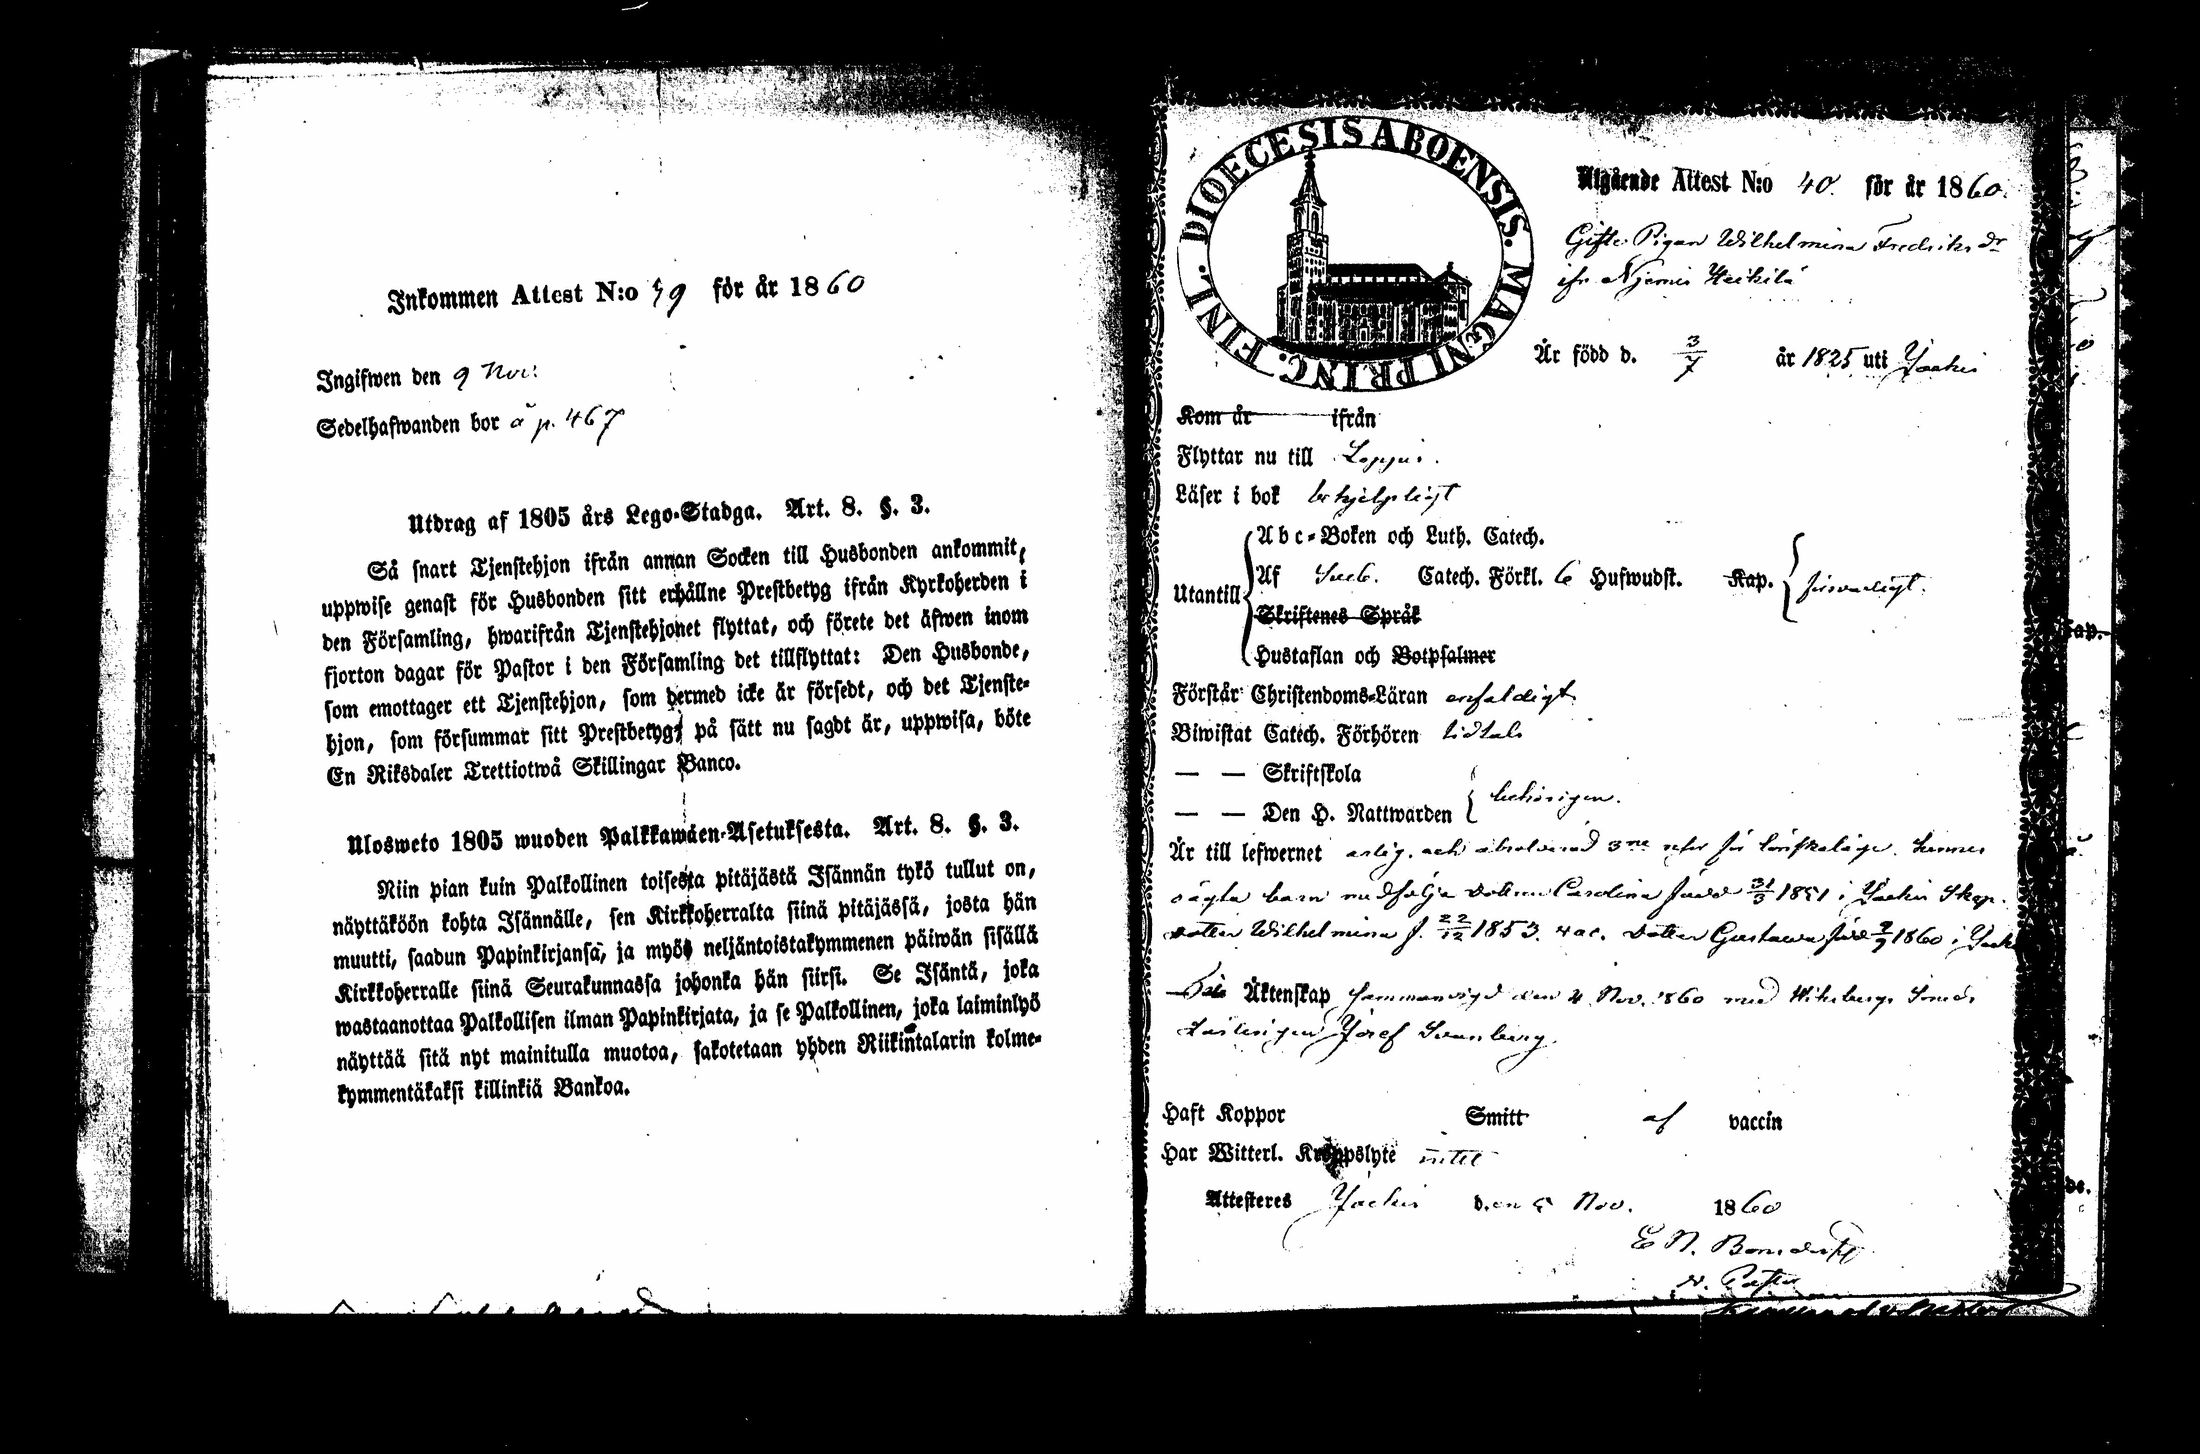 Inkommen Attest N:o 59 för år 1860
Ingifwen den 9 Nov:
Sedelhafwanden bor å p. 467
Utdrag af 1805 års Lego-Stadga. Art. 8. §. 3.
Så snart Tjenstehjon ifrån annan Socken till Husbonden ankommit,
uppwise genast för Husbonden sitt erhållne Prestbetyg ifrån Kyrkoherden i
den Församling, hwarifrån Tjenstehjonet flyttat, och förete det äfwen inom
fjorton dagar för Pastor i den Församling det tillflyttat: Den Husbonde,
som emottager ett Tjenstehjon, som dermed icke är försedt, och det Tjenste-
hjon, som försummar sitt Prestbetyg, på sätt nu sagdt är, uppwisa, böte
En Riksdaler Trettiotwå Skillingar Banco.
Ulosweto 1805 wuoden Palkkawäen-Asetuksesta. Art. 8. §. 3.
Niin pian kuin Palkollinen toisesta pitäjästä Isännän tykö tullut on,
näyttäköön kohta Isännälle, sen Kirkkoherralta siinä pitäjässä, josta hän
muutti, saadun Papinkirjansa, ja myös neljäntoistakymmenen päiwän sisällä
Kirkkoherralle siinä Seurakunnassa johonka hän siirsi. Se Isäntä, joka
wastaanottaa Palkollisen ilman Papinkirjata, ja se Palkollinen, joka laiminlyö
näyttää sitä nyt mainitulla muotoa, sakotetaan yhden Riikintalarin kolme-
kymmentäkaksi killinkiä Bankoa.
DIOECESIS ABOENSIS. MAGNI PRINC. FINL.
Utgående Attest N:o 40. för år 1860.
Gifte Pigan Wilhelmina Fredriksdr
ifr Heikilä
Är född d. 3/7 år 1825 uti Jockis
Kom år ifrån
Flyttar nu till Loppis.
Läser i bok behjelpligt
Utantill
Abc-Boken och Luth. Catech.
Af Sveb. Catech. Förkl. 6 Hufwudst. Kap. försvarligt.
Skriftenes Språk
Hustaflan och Botpsalmer
Förstår Christendoms-Läran enfaldigt
Biwistat Catech. Förhören tidtals
— — Skriftskola
— — Den H. Nattwarden behörigen.
Är till lefwernet ärlig, och absolverad 3ne för lönskaläge. Hennes
oägta barn medfölja dottren Carolina född 31/3 1851 i Jockis
dotter Wilhelmina f. 22/12 1853. vac. dotter Gustawa född 1860 i
Äktenskap Sammanvigd den 4 Nov. 1860 med
Josef Svanberg.
Haft Koppor Smitt af vaccin
Har Witterl. Kroppslyte intet
Attesteres Jockis den 5 Nov. 1860
E N. Bonsdorff
v. Pastor